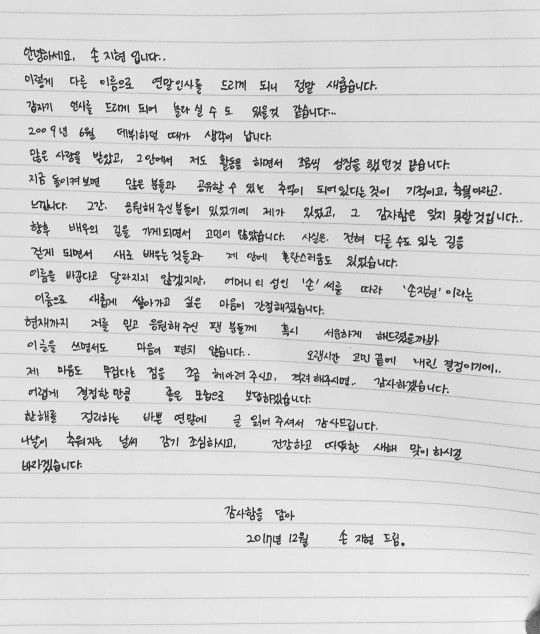 안녕하세요, 손 지현 입니다..
이렇게 다른 이름으로 연말인사를 드리게 되니 정말 새롭습니다.
갑자기 인사를 드리게 되어 놀라 실 수 도 있을것 같습니다...
2009년 6월 데뷔하던 때가 생각이 납니다.
많은 사랑을 받았고, 그안에서 저도 활동을 하면서 조금씩 성장을 했던것 같습니다.
지금 돌이켜보면 많은 분들과 공유할 수 있는 추억이 되어있다는것이 기적이고, 축복이라고.
느낍니다. 그간. 응원해주신분들이 있었기에 제가 있었고, 그 감사함은 잊지 못할것입니다..
향후 배우의 길을 가게되면서 고민이 많았습니다. 사실은. 전혀 다를 수도 있는 길을
걷게 되면서 새로 배우는것들과 제 안에 혼란스러움도 있었습니다.
이름을 바꾼다고 달라지지 않겠지만, 어머니의 성인 '손' 씨를 따라 '손지현' 이라는
이름으로 새롭게 쌓아가고 싶은 마음이 간절해졌습니다.
현재까지 저를 믿고 응원해주신 팬 분들께 혹시 서운하게 해드렸을까봐
이글을 쓰면서도 마음이 편치 않습니다.. 오랜시간 고민 끝에 내린 결정이기에..
제 마음도 무겁다는 점을 조금 헤아려 주시고, 격려 해주시면.. 감사하겠습니다.
어렵게 결정한 만큼 좋은 모습으로 보답하겠습니다.
한해를 정리하는 바쁜 연말에 글 읽어 주셔서 감사드립니다.
나날이 추워지는 날씨 감기 조심하시고, 건강하고 따뜻한 새해 맞이 하시길
바라겠습니다.
감사함을 담아
2017년 12월 손 지현 드림.